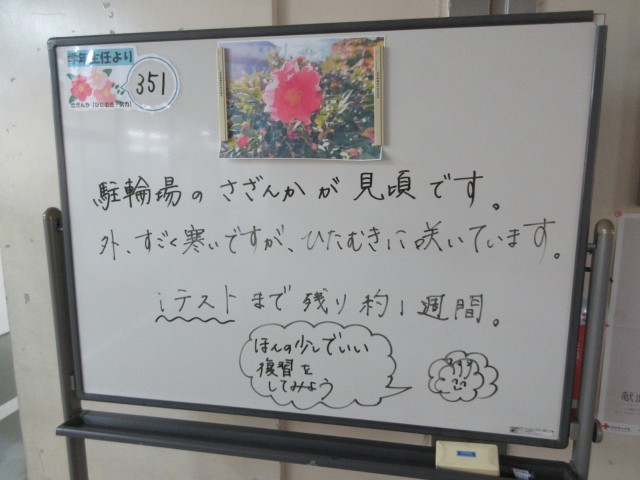 学年主任より
351
駐輪場のさざんかが見頃です。
外、すごく寒いですが、ひたむきに咲いています。
iテストまで残り約1週間。
ほんの少しでいい
復習を
してみよう
献